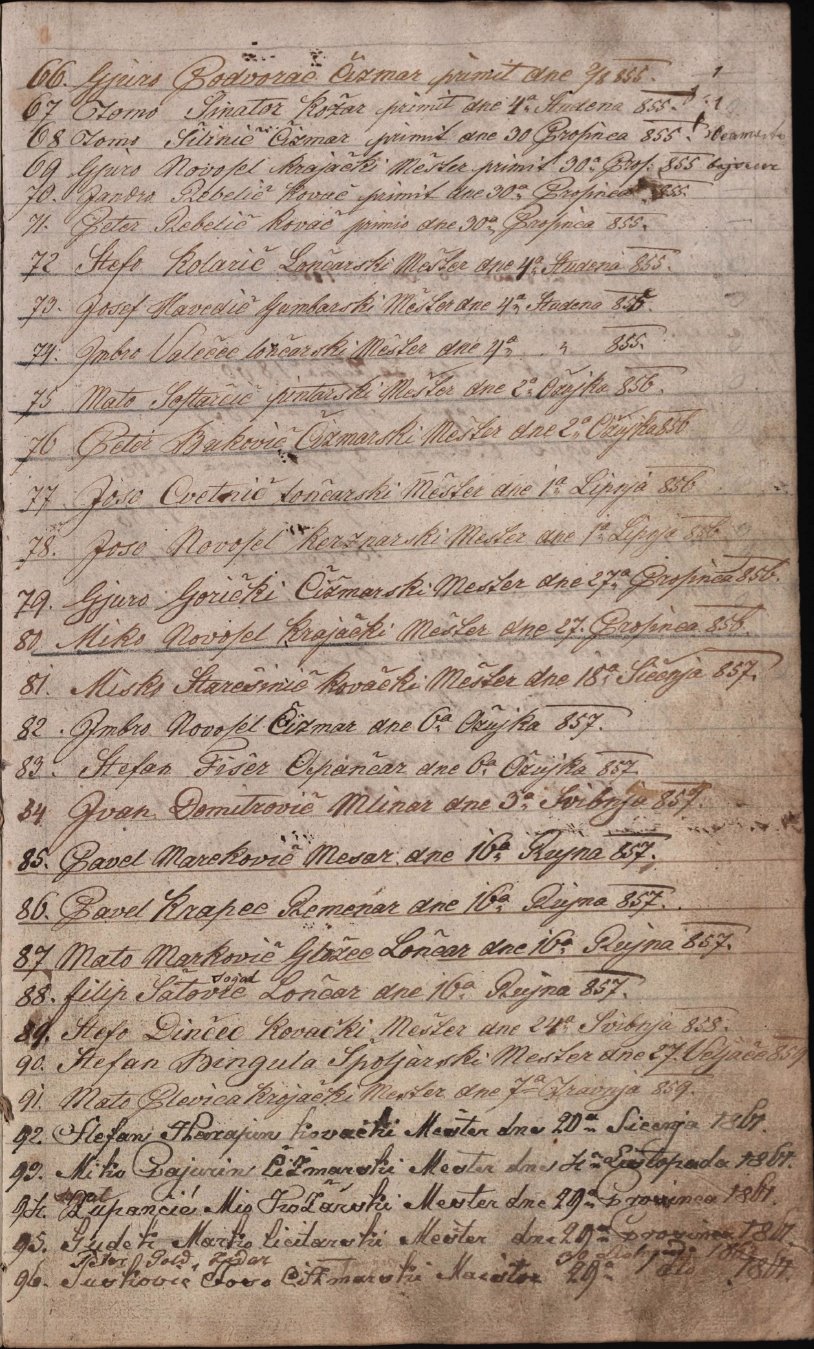 66. Gjuro Podvorac Čizmar primit dne 9/8 855.
67 Tomo Sinator Kožar primit dne 4ª Studena 855. 1
68 Tomo Silinić Čižmar primit dne 30 Prosinca 855.
69 Gjuro Novosel Krajački Mešter primit 30ª Pros. 855
70. Jandro Rebelič Kovač primit dne 30ª Prosinca 855.
71. Peter Rebelič Kovač primio dne 30ª Prosinca 855.
72 Stefo Kolarič Lončarski Mešter dne 4ª Studena 855.
73. Josef Havedič Gumbarski Mešter dne 4ª Studena 855.
74. Jmbro Valečec lončarski Mešter dne 4ª " 855.
75 Mato Softarčič pintarski Mešter dne 2ª Ožujka 856.
76 Petor Bakovič Čizmarski Mešter dne 2ª Ožujka 856
77 Joso Cvetnič Lončarski Mešter dne 1ª Lipnja 856
78. Joso Novosel Kerznarski Mešter dne 1ª Lipnja 856
79. Gjuro Gorički Čižmarski Mešter dne 27ª Prosinca 856.
80 Miko Novosel Krajački Mešter dne 27. Prosinca 856.
81. Misko Starešinič Kovački Mešter dne 18ª Siečnja 857.
82. Jmbro Novosel Čizmar dne 6ª Ožujka 857.
83. Stefan Fišer Opančar dne 6ª Ožujka 857
84 Jvan Demitrovič Mlinar dne 3ª Svibnja 857.
85. Pavel Marekovič Mesar dne 16ª Rujna 857.
86. Pavel Krapec Remenar dne 16ª Rujna 857.
87 Mato Markovič Lončar dne 16ª Rujna 857.
88. filip Šatovič Lončar dne 16ª Rujna 857.
89. Stefo Dinčec Kovački Mešter dne 24ª Svibnja 858.
90. Stefan Bengula Spoljarski Mešter dne 27. Veljače 859
91. Mato Plevica Krojački Mešter dne 7ª Travnja 859.
92. Stefan Kovački Mešter dne 20ª Sicenja 1861.
93. Miko Čižmarski Mešter dne Listopada 1861.
94. Zupančić Mijo Kožarski Mešter dne 29ª Provinca 1861.
95. Gudek Marko licitarski Mešter dne 29ª provinca 1861.
96. Juškovic Joso Čižmarski Maistor 29ª dto 1861.